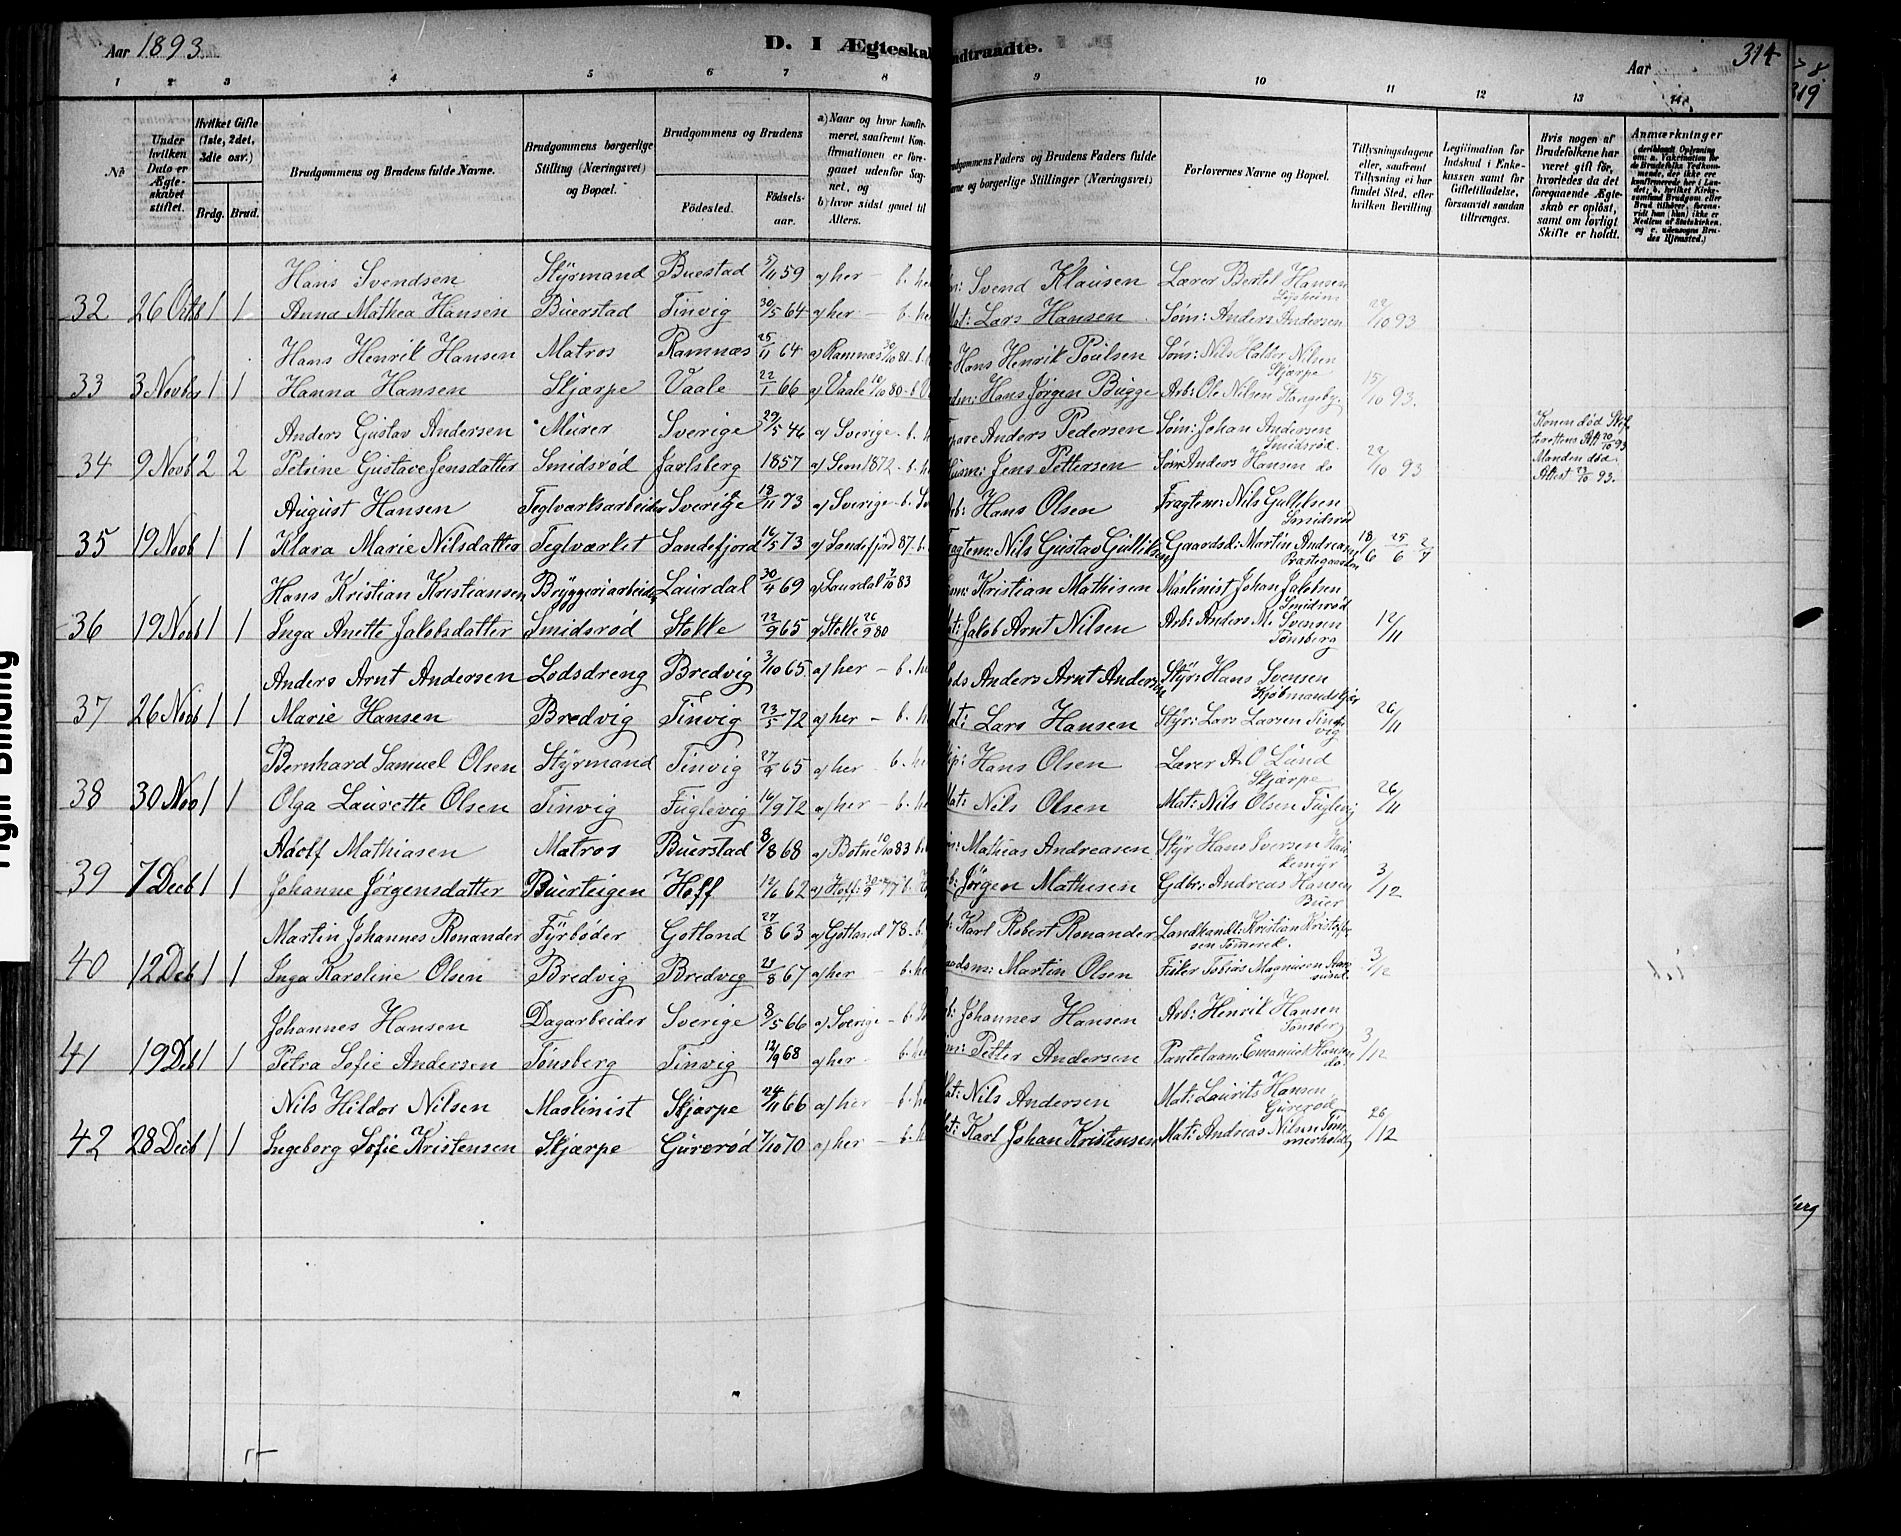 Aar 1893
D. I Ægteskab Indtraadte.
Aar
314
1 2 3 4 5 6 7 8 9 10 11 12 13 14
8
319
No
Under hvilken Dato er Ægteskabet stiftet.
Hvilket Gifte (1ste, 2det, 3die osv.)
Brdg. Brud.
Brudgommens og Brudens fulde Navne.
Brudgommens borgerlige Stilling (Næringsvei) og Bopæl.
Brudgommens og Brudens
Födested.
Födsels-aar.
a) Naar og hvor konfirmeret, saafremt Konfirmationen er foregaaet udenfor Sognet, og
b) hvor sidst gaaet til Alters.
udgommens Faders og Brudens Faders fulde
og borgerlige Stillinger (Næringsvei)
Forlovernes Navne og Bopæl.
Tillysningsdagene eller, saafremt Tillysning ei har fundet Sted, efter hvilken Bevilling
Legitimation for Indskud i Enkekassen samt for Giftetilladelse, forsaavidt saadan tiltrænges.
Hvis nogen af Brudefolkene har været gift för, hvorledes da det foregaaende Ægteskab er oplöst, samt om lovligt Skifte er holdt.
Anmærkninger
Hans Svendsen Styrmand Buestad 5/11 59 a) her – b. he Svend Klausen Lærer Bertel Hansen
32 26 Octb 1 1 Anna Mathea Hansen Buerstad Tinvig 30/5 64 a) her – b. he Mat: Lars Hansen Søm: Anders Andersen 22/10 93
Hans Henrik Hansen Matros Ramnæs 25/11 64 a) Ramnæs 81 – b Hans Henrik Poulsen Søm: Nils Haldor Nilsen
Skjærpe
33 3 Novbr 1 1 Hanna Hansen Skjærpe Vaale 22/1 66 a) Vaale 10/10 80 – b Hans Jørgen Bugge Arb: Ole Nilsen Stangeby 15/10 93.
Anders Gustav Andersen Murer Sverige 29/5 46 a) Sverige – b. Anders Pedersen Søm: Johan Andersen
Smidsrød
Konen død
34 9 Novb 2 2 Petrine Gustave Jensdatter Smidsrød Jarlsberg 1857 a) Sem 1872 – b. Husm: Jens Pettersen Søm: Anders Hansen do 22/10 93
Manden død. Attest 23/10 93.
August Hansen Teglværksarbeider Sverige 18/11 73 a) Sverige – b. Arb: Hans Olsen Fragtem: Nils Gulliksen
Smidsrød
35 19 Novb 1 1 Klara Marie Nilsdatter Teglværket Sandefjord 16/5 73 a) Sandefjord 87 – b. Fragtem: Nils Gustav Gulliksen Gaardsb: Martin Andreasen 18/6 25/6 2/7
Præstegaarden
Hans Kristian Kristiansen Bryggeriarbeider Laurdal 30/4 69 a) Laurdal 7/10 83 Kristian Mathisen Maskinist Johan Jakobsen
Smidsrød
36 19 Novb 1 1 Inga Anette Jakobsdatter Smidsrød Stokke 22/9 65 a) Stokke 26/9 80 Mat: Jakob Arnt Nilsen Arb: Anders M. Svensen 12/11
Tønsberg
Anders Arnt Andersen Lodsdreng Bredvig 3/10 65 a) her – b. he Lods Anders Arnt Andersen Styr: Hans Svensen
Kjøbmandskjær
37 26 Novb 1 1 Marie Hansen Bredvig Tinvig 23/5 72 a) her – b. he Mat: Lars Hansen Styr: Lars Larsen Tinvig 26/11
Bernhard Samuel Olsen Styrmand Tinvig 27/9 65 a) her – b. he Hans Olsen Lærer A. O Lund
Skjærpe
38 30 Nov 1 1 Olga Laurette Olsen Tinvig Fuglevig 16/9 72 a) her – b. he Mat: Nils Olsen Mat: Nils Olsen Fuglevig 26/11
Adolf Mathiasen Matros Buerstad 8/8 68 a) Botne 10/10 83 b. Mathias Andreasen Styr Hans Iversen
39 7 Decb 1 1 Johanne Jørgensdatter Buerteigen Hoff 12/6 62 a) Hoff 30/9 77 b. Jørgen Mathisen Gdbr: Andreas Hansen 3/12
Buer
Martin Johannes Ronander Fyrbøder Gotland 27/8 63 a) Gotland 78 – b. Karl Robert Ronander Landhandl: Kristian Kristoffersen
40 12 Deb 1 1 Inga Karoline Olsen Bredvig Bredvig 21/8 67 a) her – b. he Martin Olsen Fisker Tobias Magnusen 3/12
Johannes Hansen Dagarbeider Sverige 8/5 66 a) Sverige – b. Johannes Hansen Arb: Henrik Hansen
Tønsberg
41 19 Deb 1 1 Petra Sofie Andersen Tønsberg Tinvig 12/9 68 a) her – b. he Petter Andersen Pantelaan: Emanuel Hansen 3/12
do
Nils Hildor Nilsen Maskinist Skjærpe 24/11 66 a) her – b. he Mat: Nils Andersen Mat: Laurits Hansen
Gurerød
42 28 Decb 1 1 Ingeborg Sofie Kristensen Skjærpe Gurerød 7/10 70 a) her – b. he Mat: Karl Johan Kristensen Mat: Andreas Nilsen Tømmerholdt 26/12